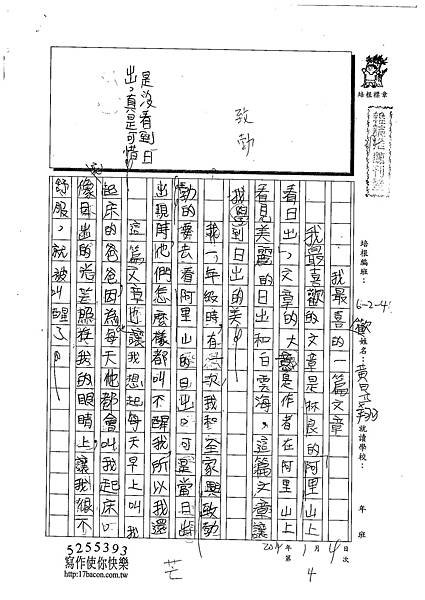 培根標章
培根編班:
6-2-4
姓名:黃
就讀學校:
年 班
2011年 1月 4日
第 4 次
我最喜歡的一篇文章
我最喜歡的文章是林良的阿里山上
看日出,文章的大意是作者在阿里山上
看見美麗的日出和白雲海,這篇文章讓
我學到日出的美。
我一年級時,有一次我和全家興致勃
勃的要去看阿里山的日出。可是當日出
出現時,他們怎麼樣都叫不醒我,所以我還
是沒看到日
出,真是可惜
這篇文章也讓我想起每天早上叫我
起床的爸爸,因為每天他都會叫我起床。
像日出的光芒照耀我的眼睛上,讓我很不
舒服,就被叫醒了。
致
勃
芒
5255393
寫作使你快樂
http://17bacon.com.tw